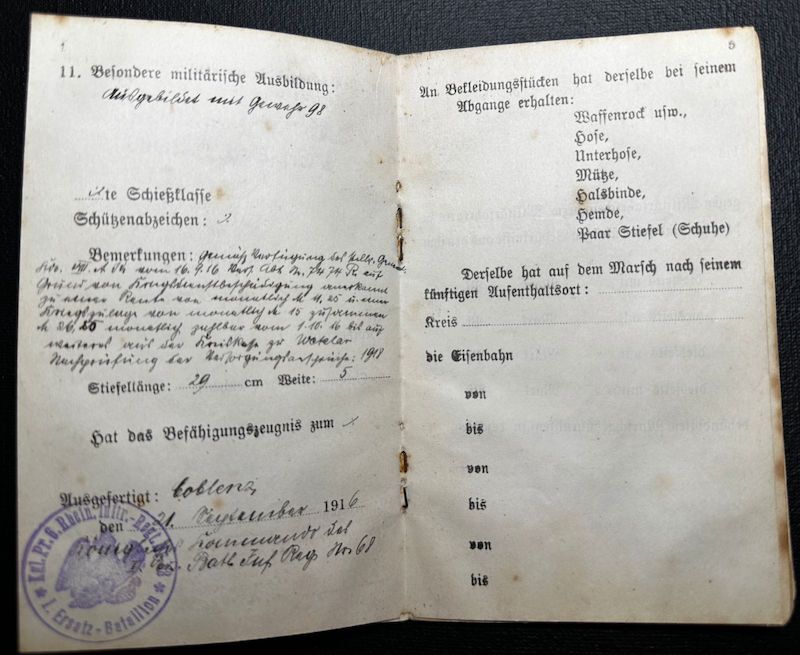 11. Besondere militärische Ausbildung:
Ausgebildet mit Gewehr 98
te Schießklasse
Schützenabzeichen:
Bemerkungen: Gemäß Verfügung des stellv. Gener.
Kdo. VIII. A. Ks vom 16.9.16 Vers. Abt. N. 7474 R. auf
Grund von Kriegsdienstbeschädigung anerkannt
zu einer Rente von monatlich M 11,25 u. einer
Kriegszulage von monatlich M 15 zusammen
M 26,25 monatlich zahlbar vom 1.10.16 bis auf
weiteres aus der Kreiskasse zu Wetzlar
Nachprüfung der Versorgungsansprüche: 1918
Stiefellänge: 29 cm Weite: 5
Hat das Befähigungszeugnis zum
Ausgefertigt: Coblenz
den 21. September 1916
Königliches Kommando des
Batl. Inf. Reg. No 68
Kgl. Pr. 6. Rhein. Inftr.-Regt. No. 68
I. Ersatz-Bataillon
5
An Bekleidungsstücken hat derselbe bei seinem
Abgange erhalten:
Waffenrock usw.,
Hose,
Unterhose,
Mütze,
Halsbinde,
Hemde,
Paar Stiefel (Schuhe)
Derselbe hat auf dem Marsch nach seinem
künftigen Aufenthaltsort:
Kreis
die Eisenbahn
von
bis
von
bis
von
bis